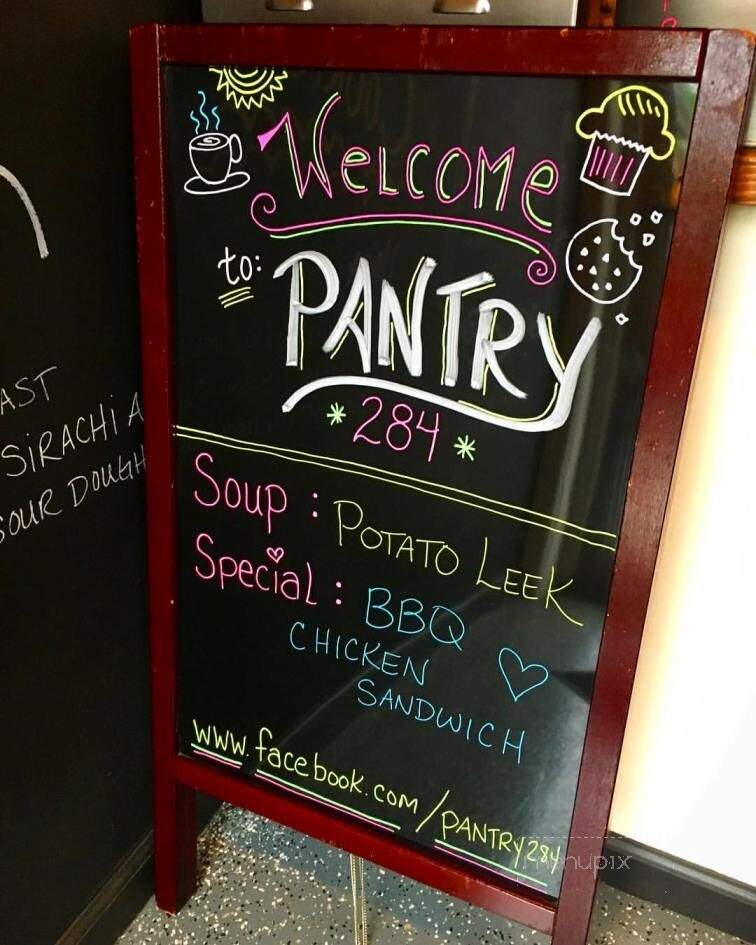 Welcome
to:
PANTRY
* 284 *
Soup : Potato Leek
Special : BBQ
Chicken
Sandwich
www.facebook.com/PANTRY284
AST
SIRACHI A
SOUR DOUGH
menupix